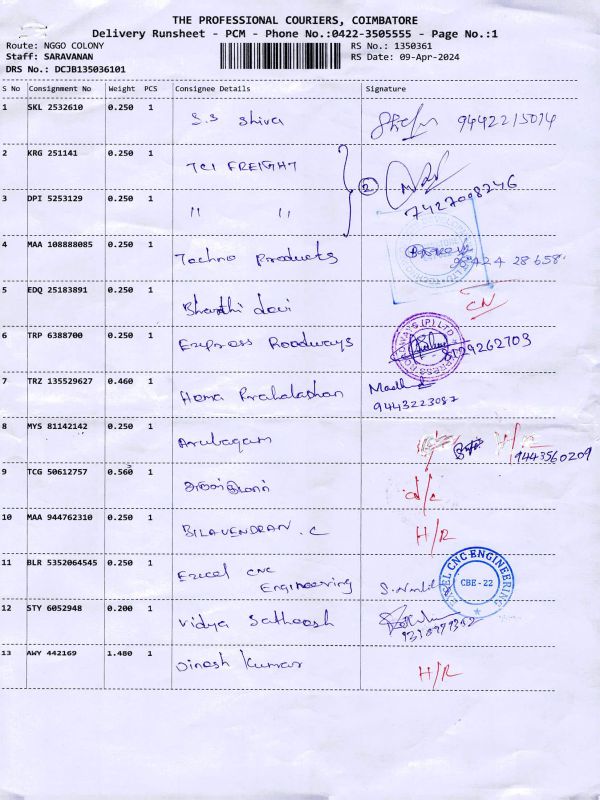 THE PROFESSIONAL COURIERS, COIMBATORE
Delivery Runsheet - PCM - Phone No.:0422-3505555 - Page No.:1
Route: NGGO COLONY
RS No.: 1350361
Staff: SARAVANAN
RS Date: 09-Apr-2024
DRS No.: DCJB135036101
S No Consignment No Weight PCS Consignee Details Signature
1 SKL 2532610 0.250 1 S.S Shiva 9442215014
2 KRG 251141 0.250 1 TCI FREIGHT
2 7427008246
3 DPI 5253129 0.250 1 " "
4 MAA 108888085 0.250 1 Techno Products
5 EDQ 25183891 0.250 1 Bharathi devi CN
6 TRP 6388700 0.250 1 Express Roadways 8129262703
7 TRZ 135529627 0.460 1 Hema Prahalathan
9443223087
8 MYS 81142142 0.250 1 Arulagam H/R
9443560209
9 TCG 50612757 0.560 1 d/c
10 MAA 944762310 0.250 1 BILAVENDRAN . C H/R
11 BLR 5352064545 0.250 1 Excel CNC
Engineering
EXCEL CNC ENGINEERING
CBE - 22
12 STY 6052948 0.200 1 Vidya Satheesh
13 AWY 442169 1.480 1 Dinesh Kumar H/R